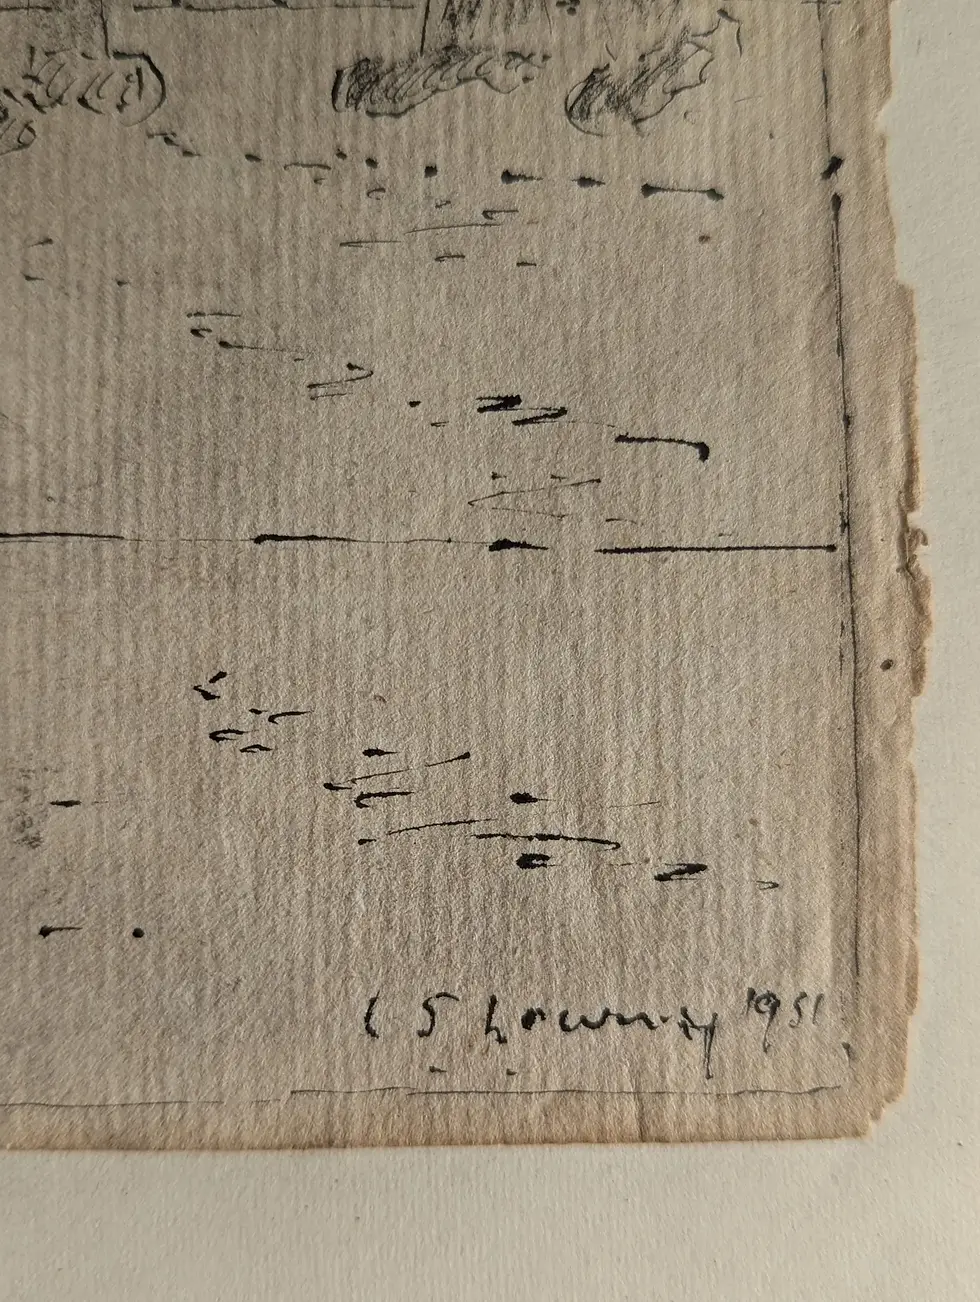 L S Lowry 1951